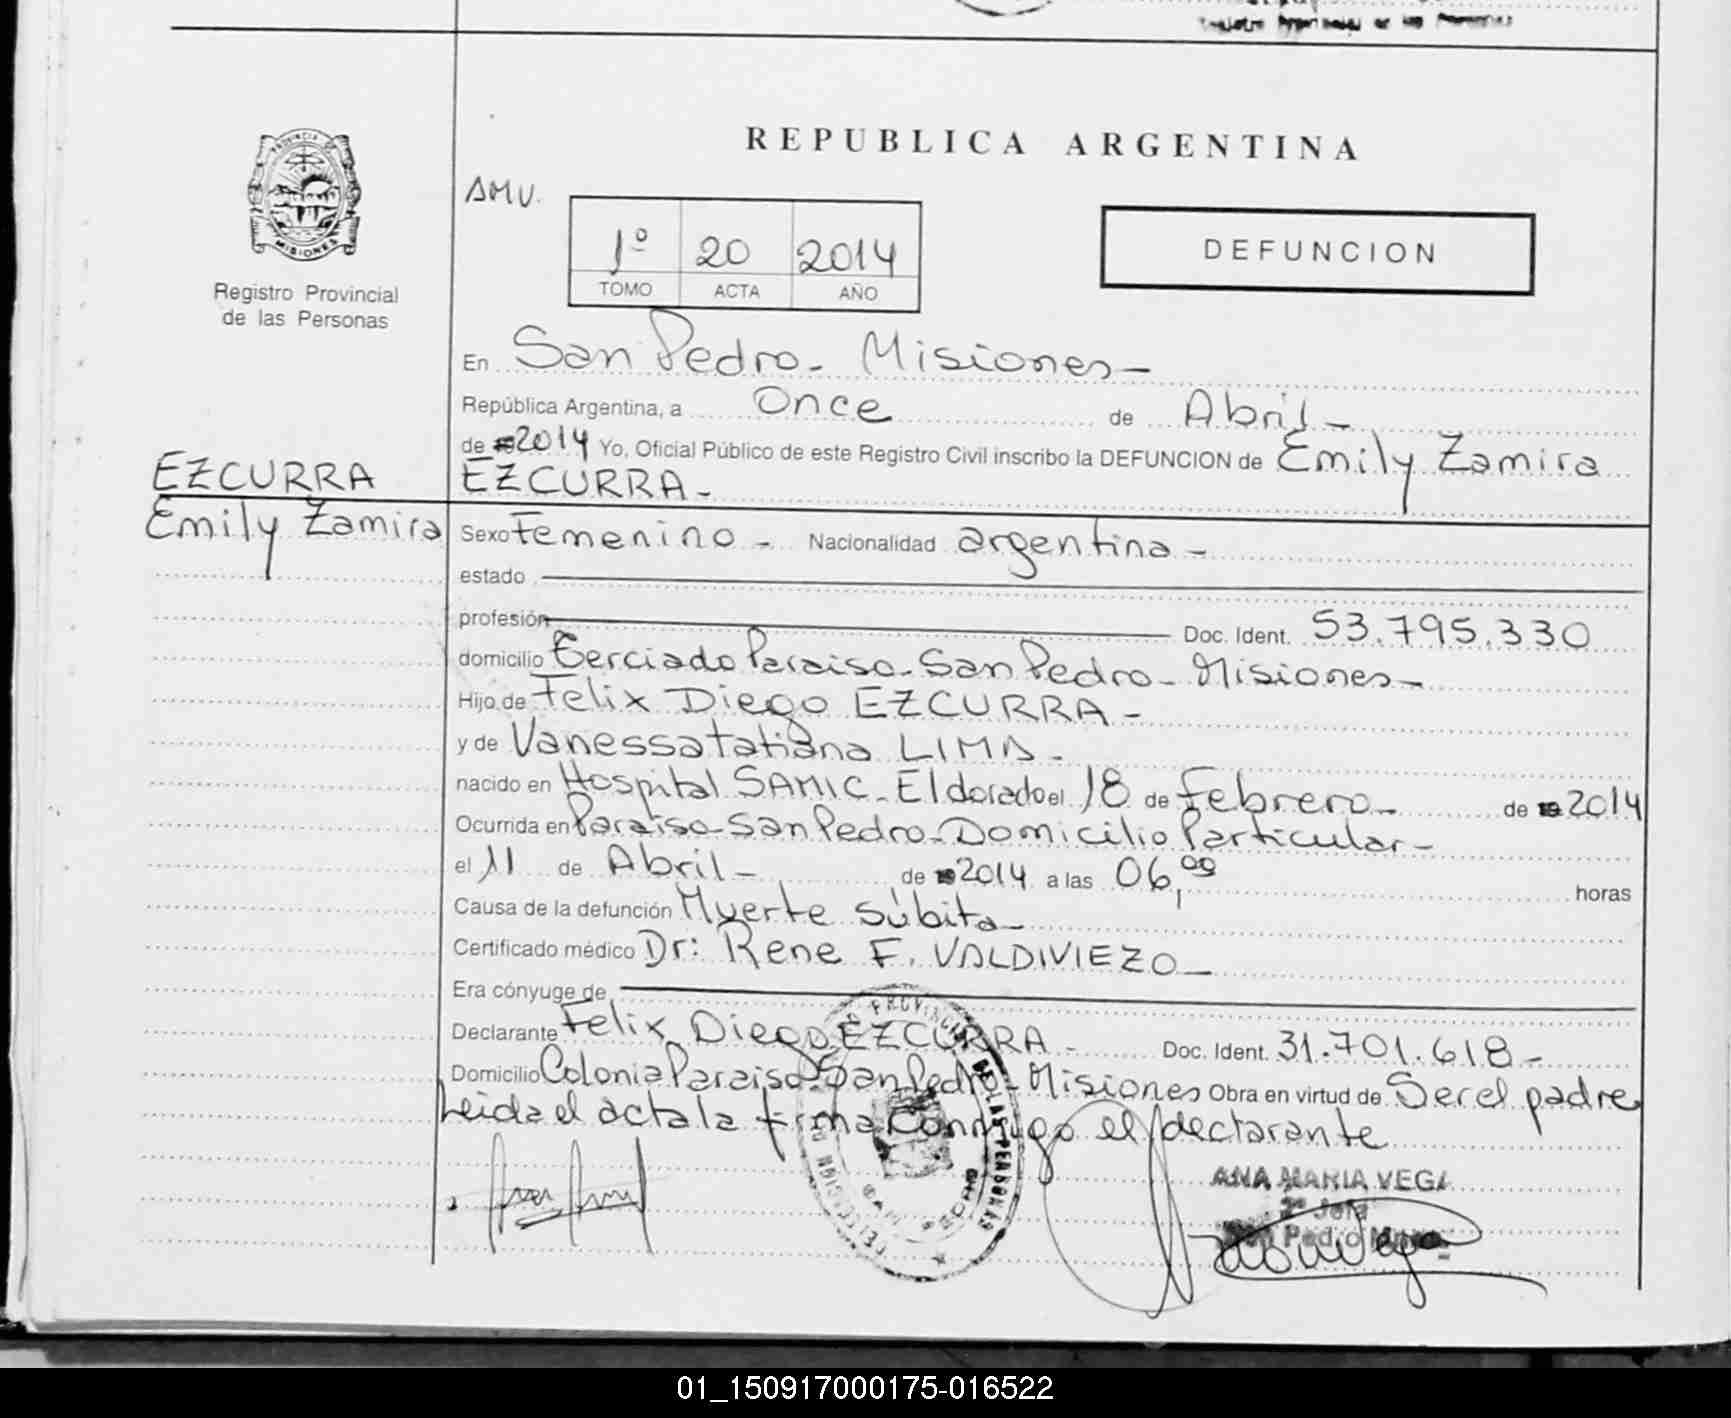 REPUBLICA ARGENTINA
PROVINCIA DE
MISIONES
Registro Provincial
de las Personas
AMV.
1º 20 2014
TOMO ACTA AÑO
DEFUNCION
En San Pedro - Misiones -
República Argentina, a Once de Abril -
de 2014 Yo, Oficial Público de este Registro Civil inscribo la DEFUNCION de Emily Zamira
EZCURRA -
EZCURRA
Emily Zamira
Sexo Femenino - Nacionalidad argentina -
estado
profesión Doc. Ident. 53.795.330
domicilio Terciado Paraiso - San Pedro - Misiones -
Hijo de Felix Diego EZCURRA -
y de Vanessa tatiana LIMA -
nacido en Hospital SAMIC - Eldorado el 18 de Febrero - de 2014
Ocurrida en Paraiso - San Pedro - Domicilio Particular -
el 11 de Abril - de 2014 a las 06,00 horas
Causa de la defunción Muerte súbita -
Certificado médico Dr: Rene F. VALDIVIEZO -
Era cónyuge de
Declarante Felix Diego EZCURRA - Doc. Ident. 31.701.618 -
Domicilio Colonia Paraiso - San Pedro - Misiones Obra en virtud de Ser el padre
Leida el acta la firma conmigo el declarante
ANA MARIA VEGA
2º Jefe
San Pedro Mnes.
01_150917000175-016522